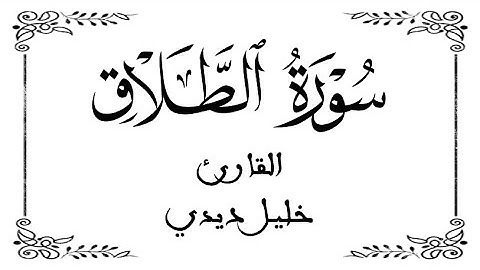 سُوْرَةُ ٱلطَّلَاق
القارئ
خليل ديدي